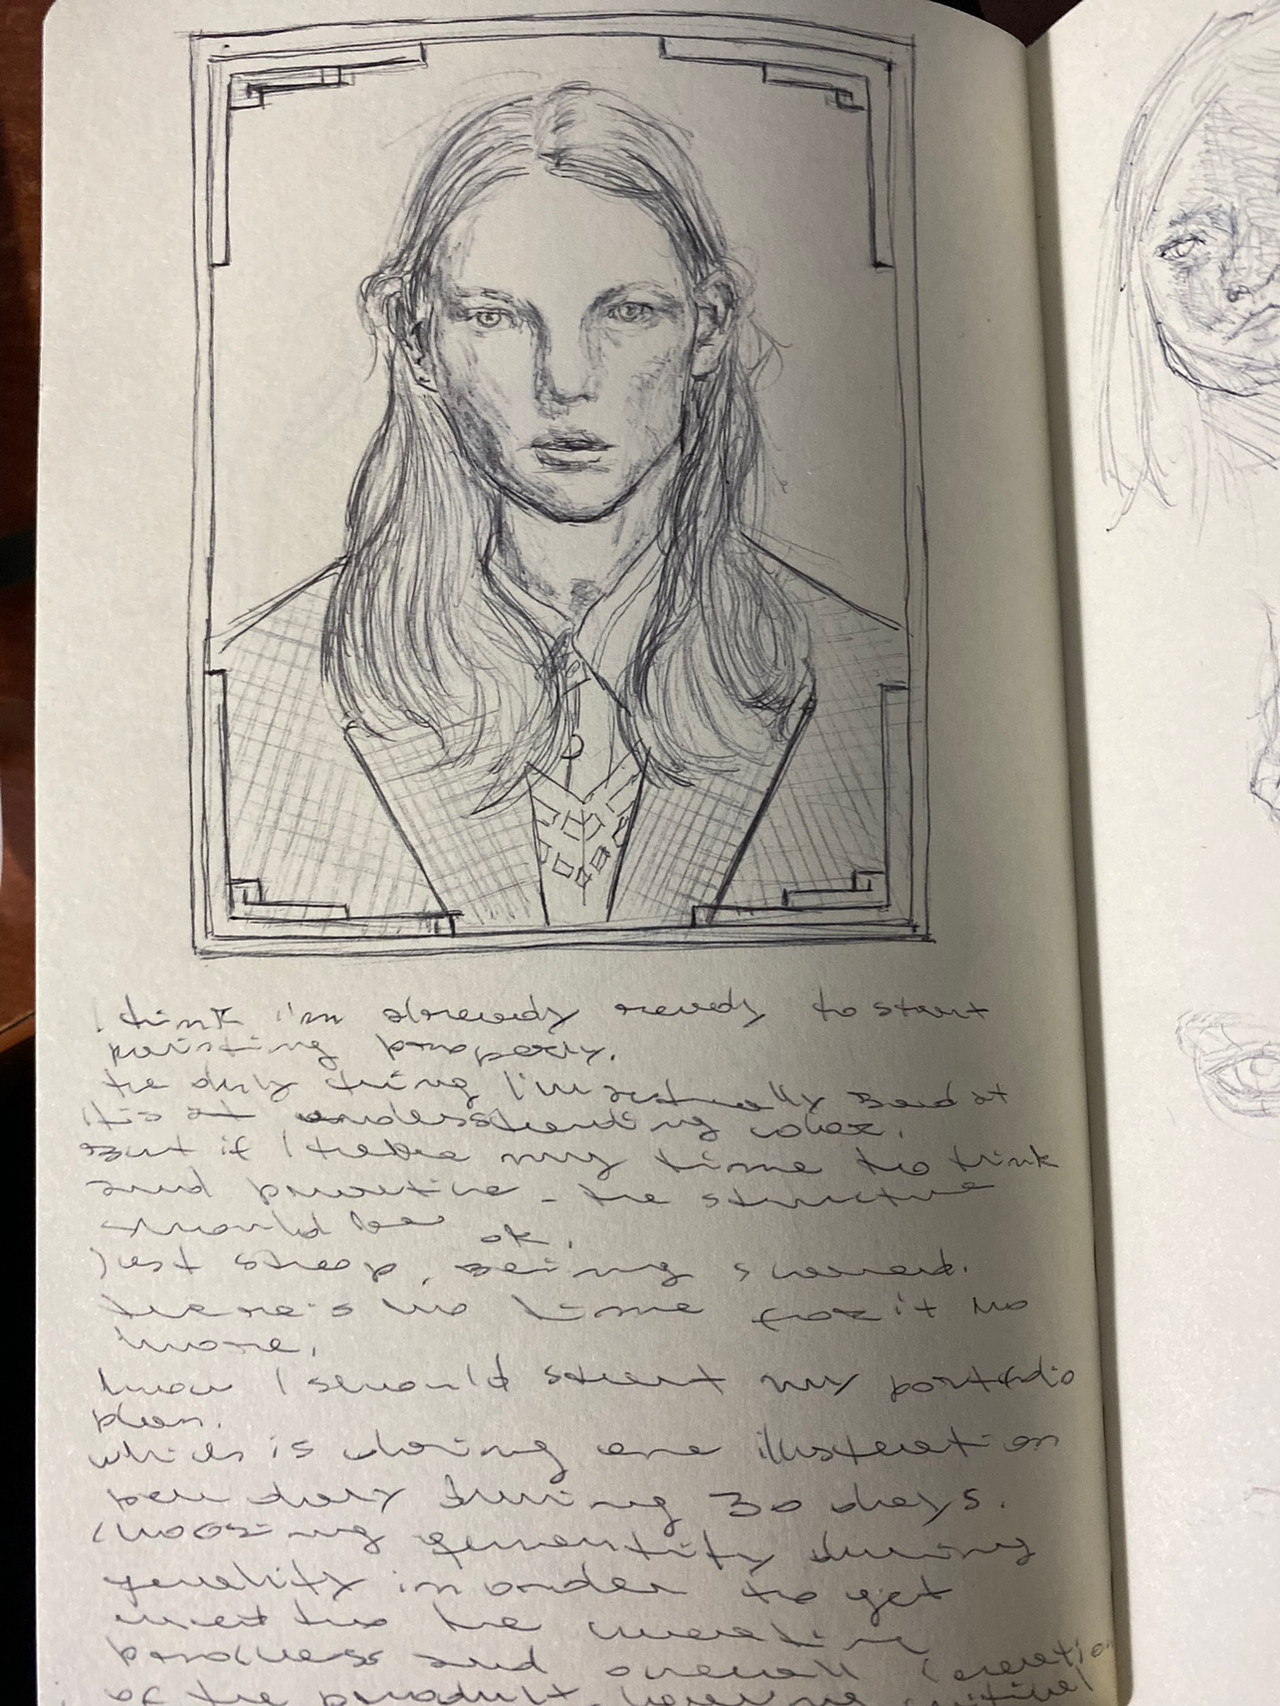 I think i'm already ready to start
painting properly.
the only thing I'm actually bad at
it's at understanding color.
But if I take my time to think
and practice - the structure
would be ok.
Just stop, being scared.
there's no time for it no
more.
know I should start my portfolio
plan.
which is doing one illustration
per day during 30 days.
choosing quantity during
quality in order to get
into the creating
process and overall creation
of the product,